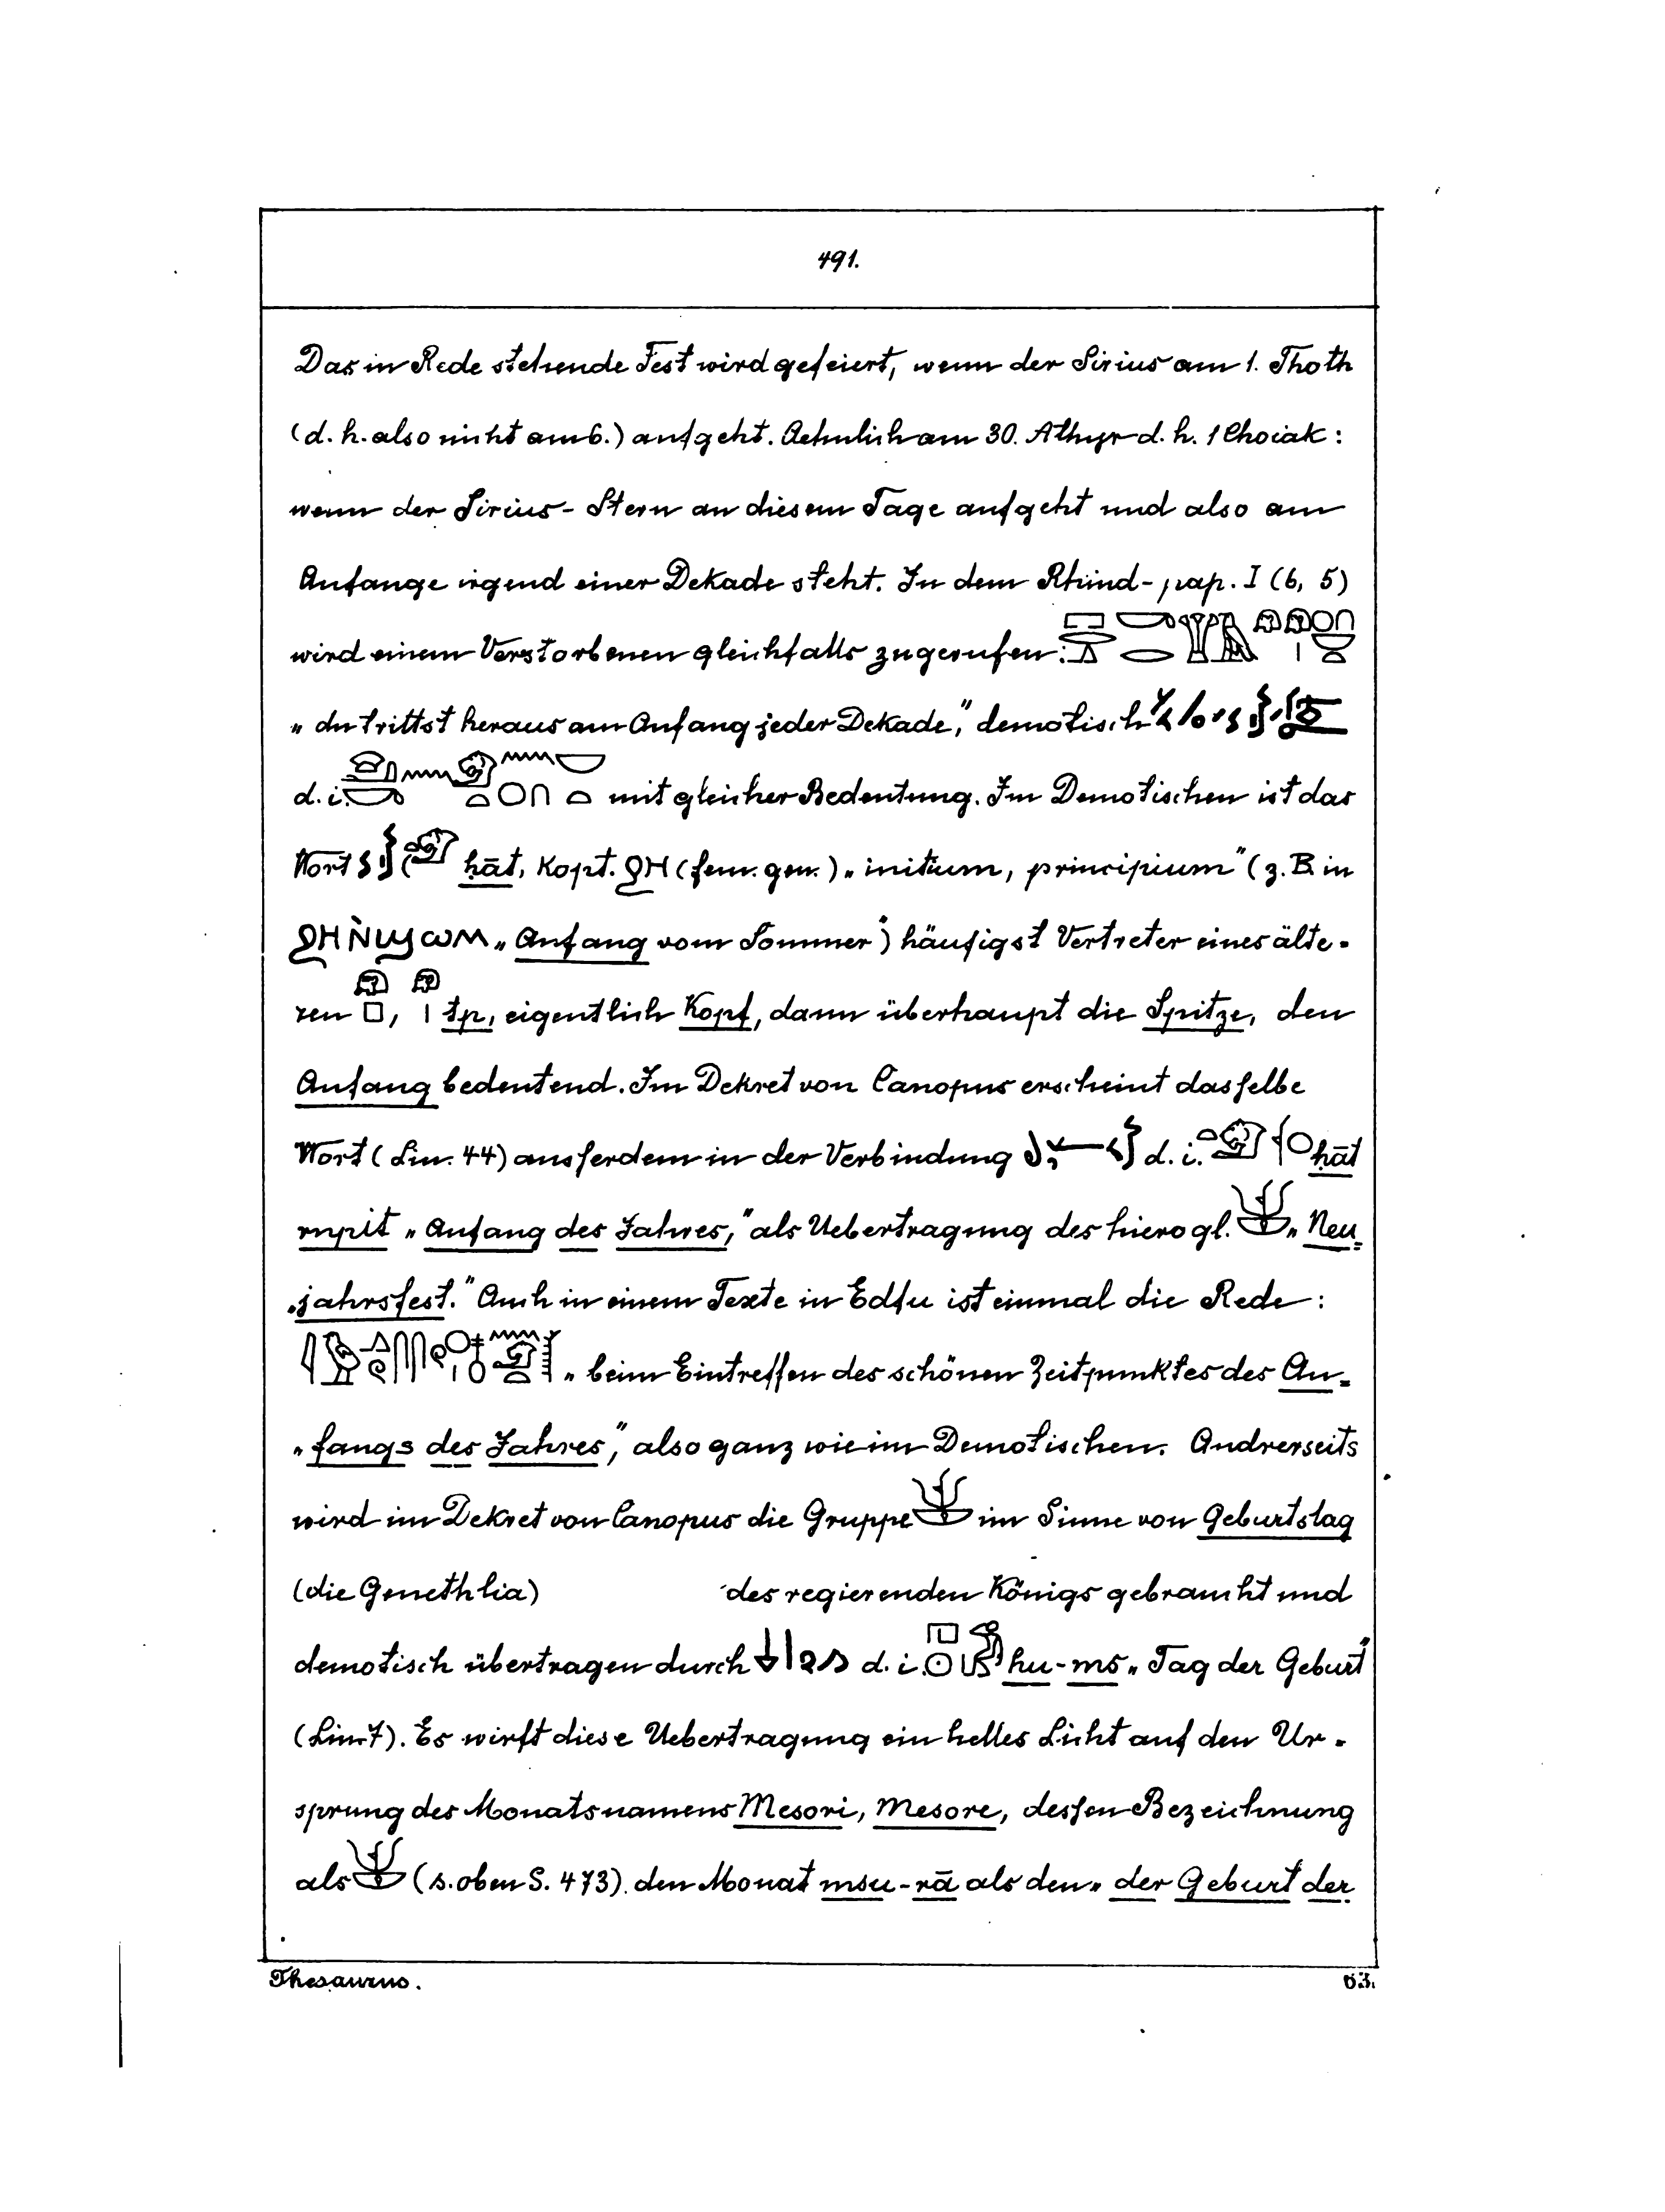 491.
Das in Rede stehende Fest wird gefeiert, wenn der Sirius am 1. Thoth
(d. h. also nicht am 6.) aufgeht. Aehnlich am 30. Athyr d. h. 1 Choiak:
wenn der Sirius-Stern an diesem Tage aufgeht und also am
Anfange irgend einer Dekade steht. In dem Rhind-pap. I (6, 5)
wird einem Verstorbenen gleichfalls zugerufen:
„du trittst heraus am Anfang jeder Dekade," demotisch
d. i. mit gleicher Bedeutung. Im Demotischen ist das
Wort ḥāt, Kopt. ϩH (fem. gen.) „initium, principium" (z. B in
ϩHǸϢωM „Anfang vom Sommer") häufigst Vertreter eines älte-
ren , tp, eigentlich Kopf, dann überhaupt die Spitze, den
Anfang bedeutend. Im Dekret von Canopus erscheint dasselbe
Wort (Lin. 44) ausserdem in der Verbindung d. i. ḥāt
rnpit „Anfang des Jahres," als Uebertragung des hierogl. „Neu-
„jahrsfest." Auch in einem Texte in Edfu ist einmal die Rede:
„beim Eintreffen des schönen Zeitpunktes des An-
„fangs des Jahres", also ganz wie im Demotischen. Andrerseits
wird im Dekret von Canopus die Gruppe im Sinne von Geburtstag
(die Genethlia) des regierenden Königs gebraucht und
demotisch übertragen durch d. i. hu-ms „Tag der Geburt"
(Lin. 7). Es wirft diese Uebertragung ein helles Licht auf den Ur-
sprung des Monatsnamens Mesori, Mesore, dessen Bezeichnung
als (s. oben S. 473) den Monat msu-rā als den „der Geburt der
Thesaurus. 63.